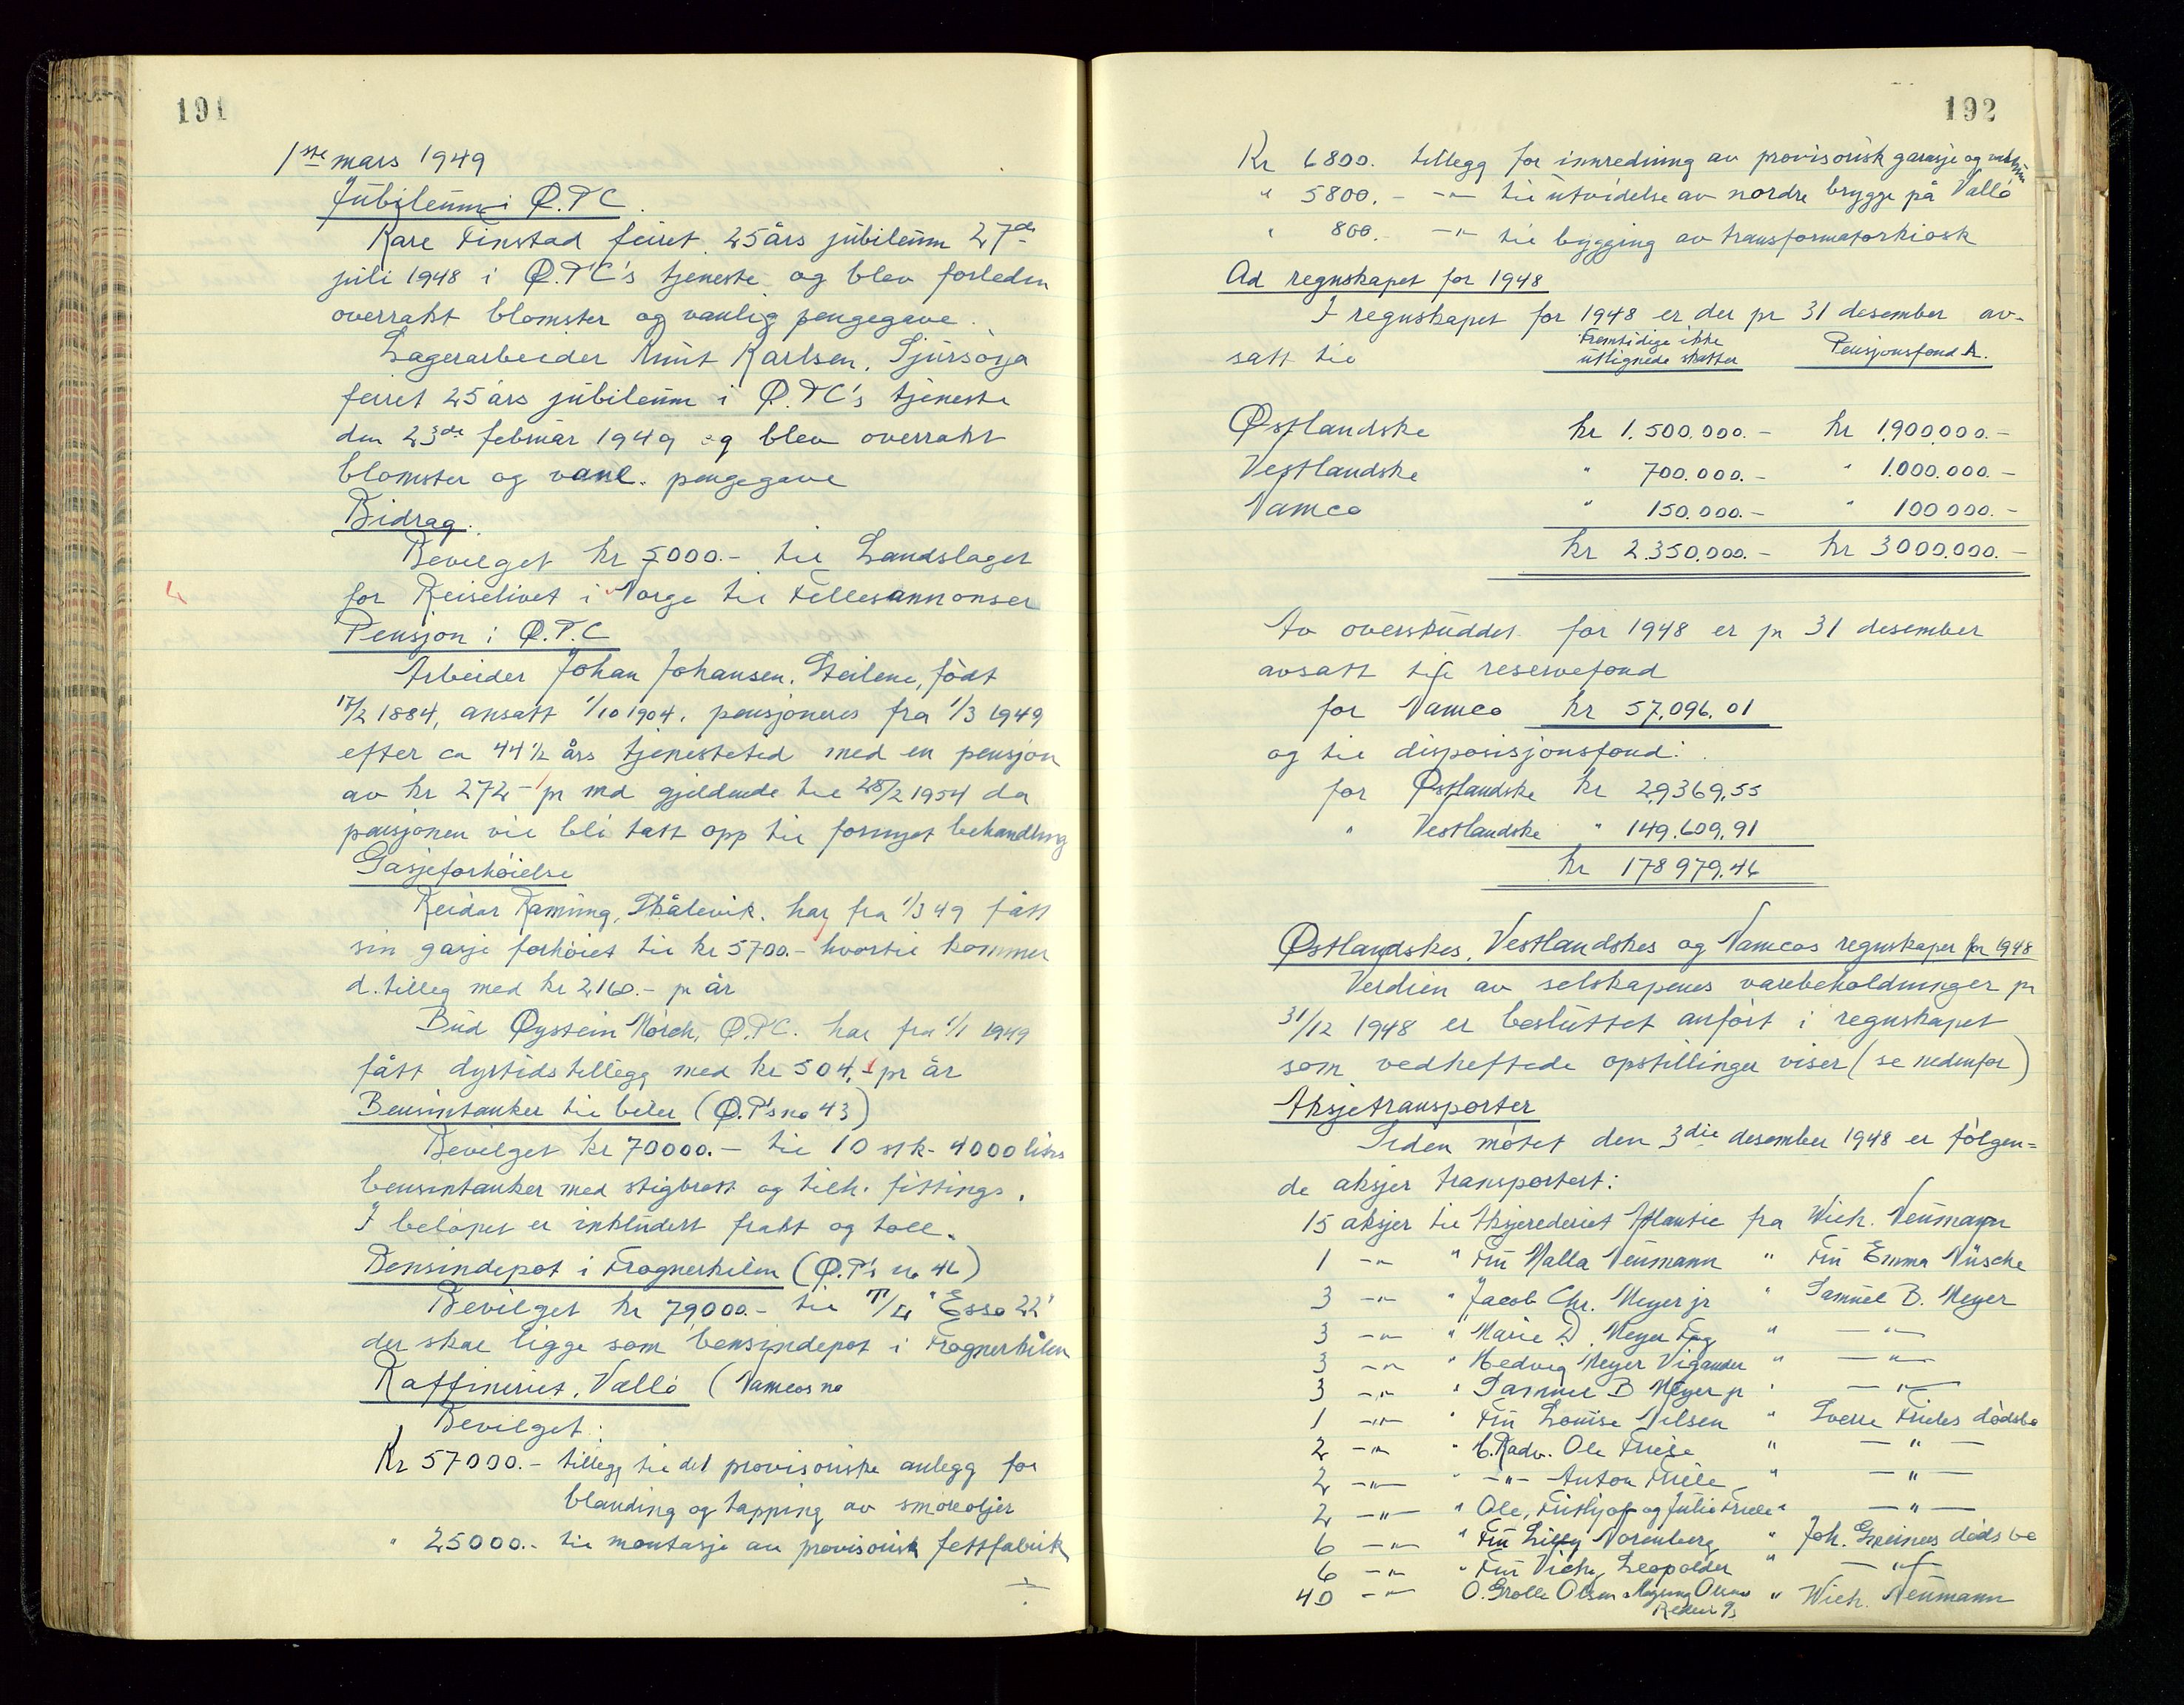 191
1ste mars 1949
Jubileum i Ø.P.C.
Kåre Finstad feiret 25 års jubileum 27de
juli 1948 i Ø.P.C's tjeneste og blev forleden
overrakt blomster og vanlig pengegave.
Lagerarbeider Knut Karlsen, Sjursøya
feiret 25 års jubileum i Ø.P.C's tjeneste
den 23de februar 1949 og blev overrakt
blomster og vanl. pengegave
Bidrag.
Bevilget kr 5000.- til Landslaget
for Reiselivet i Norge til Fellesannonser
Pensjon i Ø.P.C
Arbeider Johan Johansen, Steilene, født
17/2 1884, ansatt 1/10 1904, pensjoneres fra 1/3 1949
efter ca 44 1/2 års tjenestetid med en pensjon
av kr 272.- pr md gjeldende til 28/2 1954 da
pensjonen vil bli tatt opp til fornyet behandling
Gasjeforhøielse
Reidar Ramung, Skålevik, har fra 1/3 49 fått
sin gasje forhøiet til kr 5700.- hvortil kommer
d.tilleg med kr 2160.- pr år
Bud Øystein Mørch, Ø.P.C. har fra 1/1 1949
fått dyrtidstillegg med kr 504.- pr år
Bensintanker til biler (Ø.P's no 43)
Bevilget kr 70000.- til 10 stk. 4000 liters
bensintanker med stigbrett og tilh. fittings.
I beløpet er inkludert frakt og toll.
Bensindepot i Frognerkilen (Ø.P's no 42)
Bevilget kr 79000.- til T/L "Esso 22"
der skal ligge som bensindepot i Frognerkilen
Raffineriet, Vallø (Namcos no
Bevilget:
Kr 57000.- tillegg til det provisoriske anlegg for
blanding og tapping av smøreoljer
" 25000.- til montasje av provisorisk fettfabrik
192
Kr 6800. tillegg for innredning av provisorisk garasje og
" 5800. - -"- til utvidelse av nordre brygge på Vallø
" 800. -"- til bygging av transformatorkiosk
Ad regnskapet for 1948
I regnskapet for 1948 er der pr 31 desember av-
satt til Fremtidige ikke utlignede skatter Pensjonsfond A.
Østlandske kr 1.500.000.- kr 1.900.000.-
Vestlandske " 700.000.- " 1.000.000.-
Namco " 150.000.- " 100 000.-
kr 2.350.000.- kr 3000.000.-
Av overskuddet for 1948 er pr 31 desember
avsatt til reservefond
for Namco kr 57.096,01
og til disposisjonsfond:
for Østlandske kr 29369,55
" Vestlandske " 149.609,91
kr 178979,46
Østlandskes, Vestlandskes og Namcos regnskaper for 1948
Verdien av selskapenes varebeholdninger pr
31/12 1948 er besluttet anført i regnskapet
som vedheftede opstillinger viser (se nedenfor)
Aksjetransporter
Siden møtet den 3die desember 1948 er følgen=
de aksjer transportert:
15 aksjer til Aksjerederiet Atlantic fra Wilh. Neumann
1 -"- " Fru Malla Neumann " Fru Emma Nüsche
3 -"- " Jacob Chr. Meyer jr " Samuel B. Meyer
3 -"- " Marie D. Meyer Fog " -"-
3 -"- " Hedvig Meyer Vigander " -"-
3 -"- " Samuel B Meyer jr " -"-
1 -"- " Fru Louise Nilsen " Sverre Frieles dødsbo
2 -"- " Ole Friele " -"-
2 -"- " -"- Anton Friele " -"-
2 -"- " Ole, Fritjof og Julie Friele " -"-
6 -"- " Fru Lilly Norenberg " Joh. dødsbo
6 -"- " Fru Vicky Leopolder " -"-
40 -"- O. Grolle Olsen " Wilh. Neumann